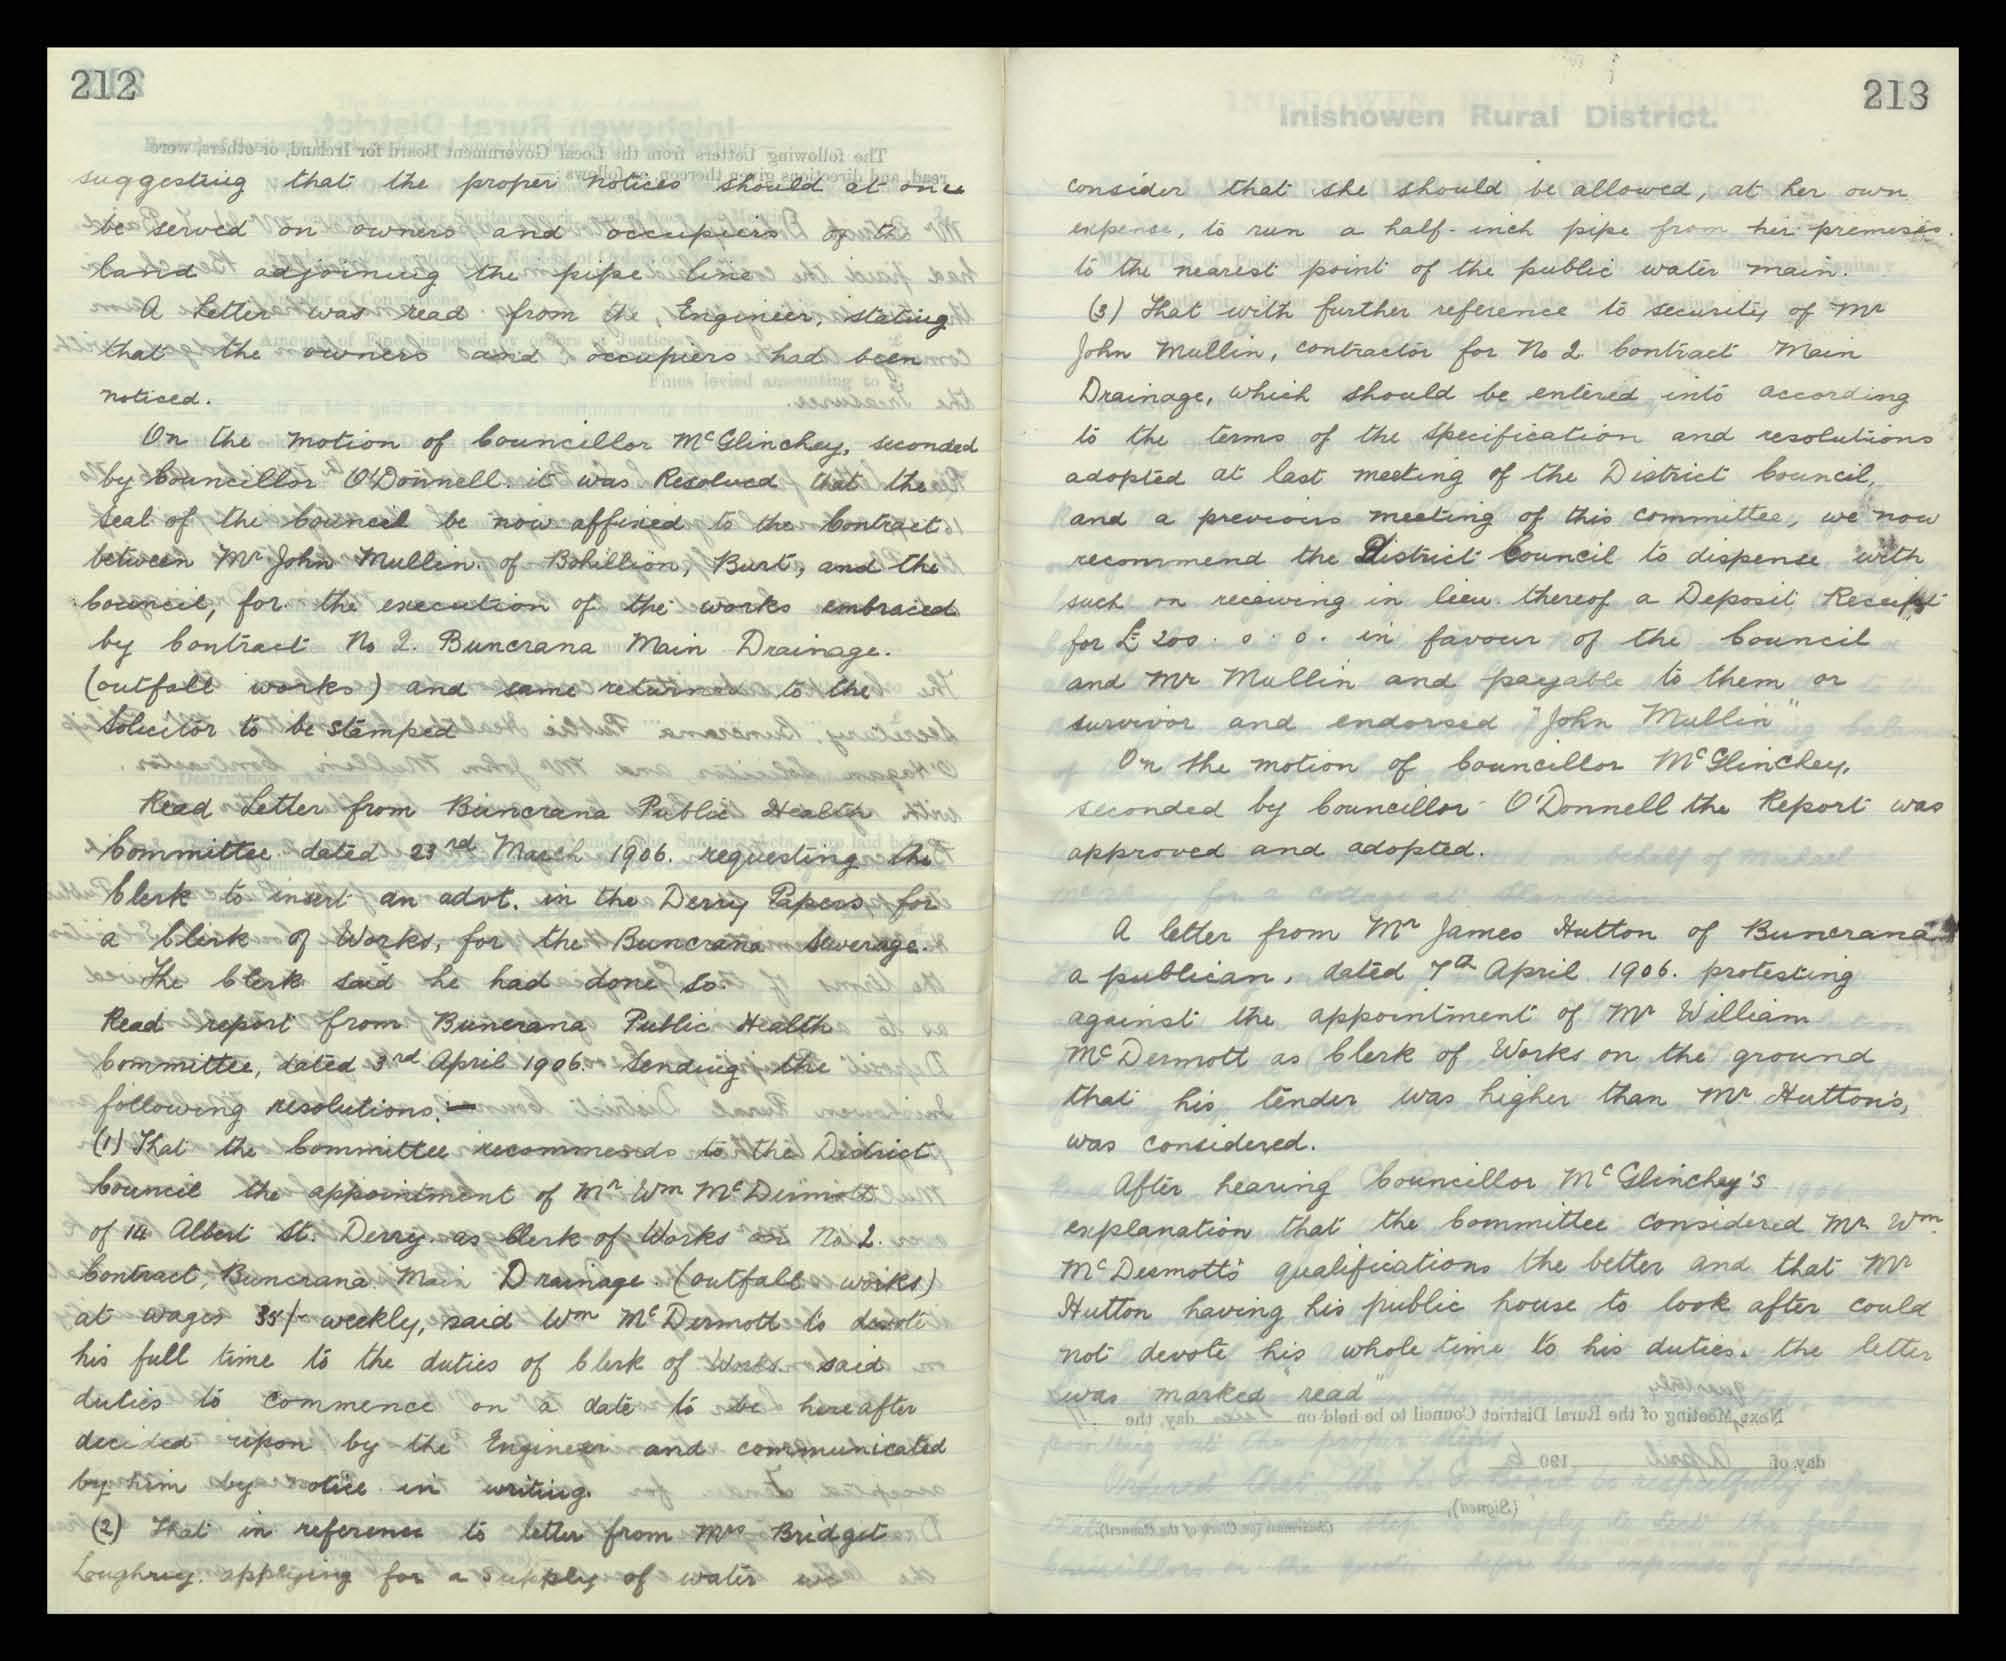 212
suggesting that the proper notices should at once
be served on owners and occupiers of the
land adjoining the pipe line
A Letter was read from the, Engineer, stating
that the owners and occupiers had been
noticed.
On the motion of Councillor McGlinchey, seconded
by Councillor O'Donnell. it was Resolved that the
Seal of the Council be now affixed to the Contract
between Mr John Mullin. of Bohillion, Burt, and the
Council, for the execution of the works embraced
by Contract No 2. Buncrana Main Drainage.
(outfall works) and same returned to the
Solicitor to be stamped
Read Letter from Buncrana Public Health
Committee dated 23rd March 1906. requesting the
Clerk to insert an advt. in the Derry Papers for
a Clerk of Works, for the Buncrana Sewerage.
The Clerk said he had done so.
Read report from Buncrana Public Health
Committee, dated 3rd April 1906. Sending the
following resolutions:—
(1) That the Committee recommends to the District
Council the appointment of Mr Wm McDermott
of 14 Albert St. Derry. as Clerk of Works on No 2.
Contract, Buncrana Main Drainage (outfall works)
at wages 35/- weekly, said Wm McDermott to devote
his full time to the duties of Clerk of Works said
duties to commence on a date to be hereafter
decided upon by the Engineer and communicated
by him by notice in writing.
(2) That in reference to letter from Mrs Bridget
Loughrey. applying for a supply of water we
213
Inishowen Rural District.
consider that she should be allowed, at her own
expense, to run a half-inch pipe from her premises
to the nearest point of the public water main.
(3) That with further reference to security of Mr
John Mullin, contractor for No 2 Contract Main
Drainage, which should be entered into according
to the terms of the specification and resolutions
adopted at last meeting of the District Council,
and a previous meeting of this committee, we now
recommend the District Council to dispense with
such on receiving in lieu thereof a Deposit Receipt
for £200. 0. 0. in favour of the Council
and Mr Mullin and payable to them or
survivor and endorsed "John Mullin"
On the motion of Councillor McGlinchey,
seconded by Councillor O'Donnell the Report was
approved and adopted.
A letter from Mr James Hutton of Buncrana
a publican, dated 7th April 1906. protesting
against the appointment of Mr William
McDermott as Clerk of Works on the ground
that his tender was higher than Mr Hutton's,
was considered.
After hearing Councillor McGlinchey's
explanation that the Committee considered Mr Wm
McDermott's qualifications the better and that Mr
Hutton having his public house to look after could
not devote his whole time to his duties. the letter
was marked "read"